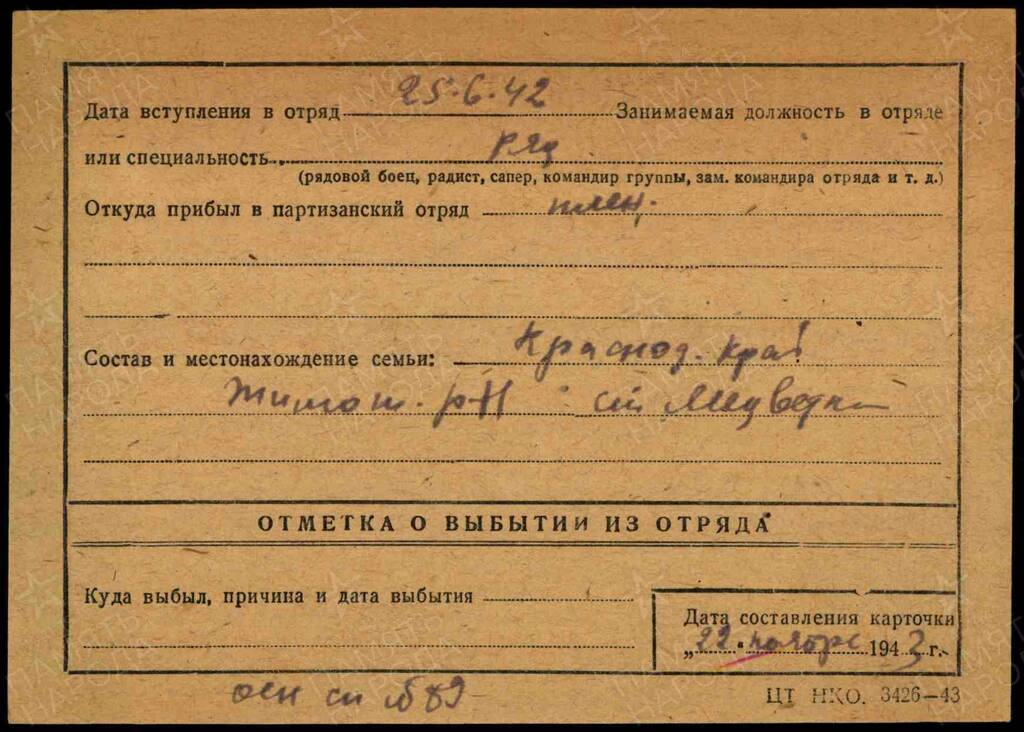 Дата вступления в отряд 25.6.42 Занимаемая должность в отряде
или специальность ряд
(рядовой боец, радист, сапер, командир группы, зам. командира отряда и т. д.)
Откуда прибыл в партизанский отряд плен.
Состав и местонахождение семьи: Краснод. край
р-Н ст Медведк
ОТМЕТКА О ВЫБЫТИИ ИЗ ОТРЯДА
Куда выбыл, причина и дата выбытия
Дата составления карточки
„22" ноября 1943 г.
осн сп
ЦТ НКО. 3426—43